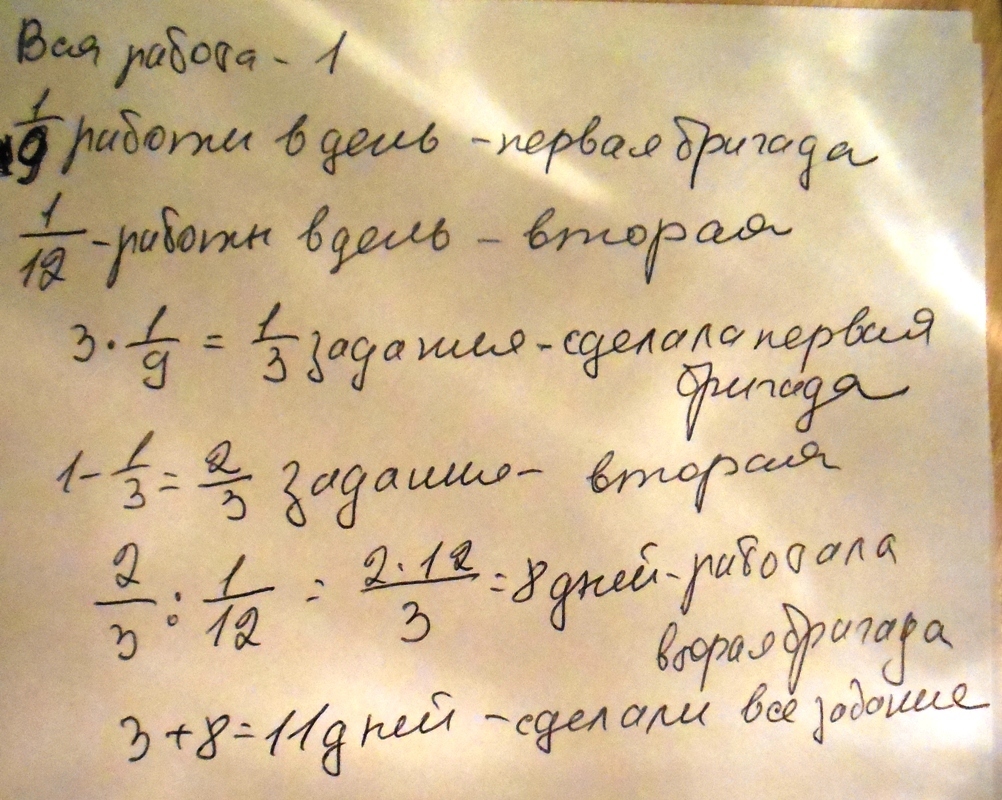 Вся работа - 1
1/9 работы в день - первая бригада
1/12 - работы в день - вторая
3 · 1/9 = 1/3 задания - сделала первая
бригада
1 - 1/3 = 2/3 задания - вторая
2/3 : 1/12 = 2·12/3 = 8 дней - работала
вторая бригада
3+8=11 дней - сделали все задание